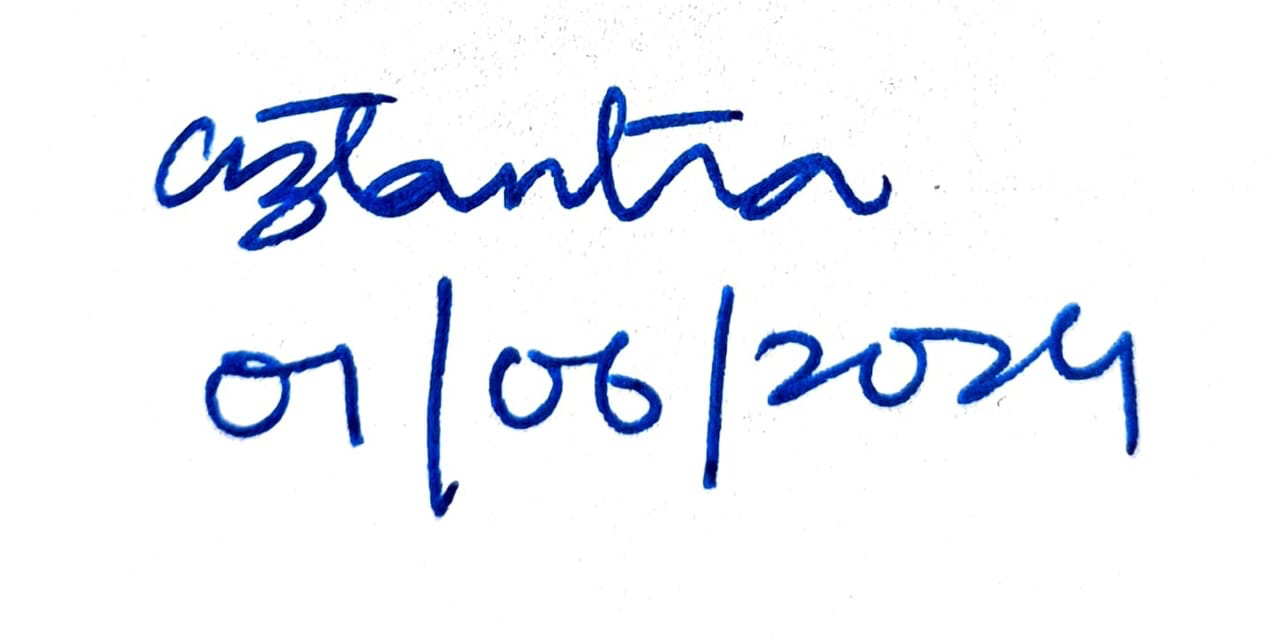 aztantra
01/06/2024